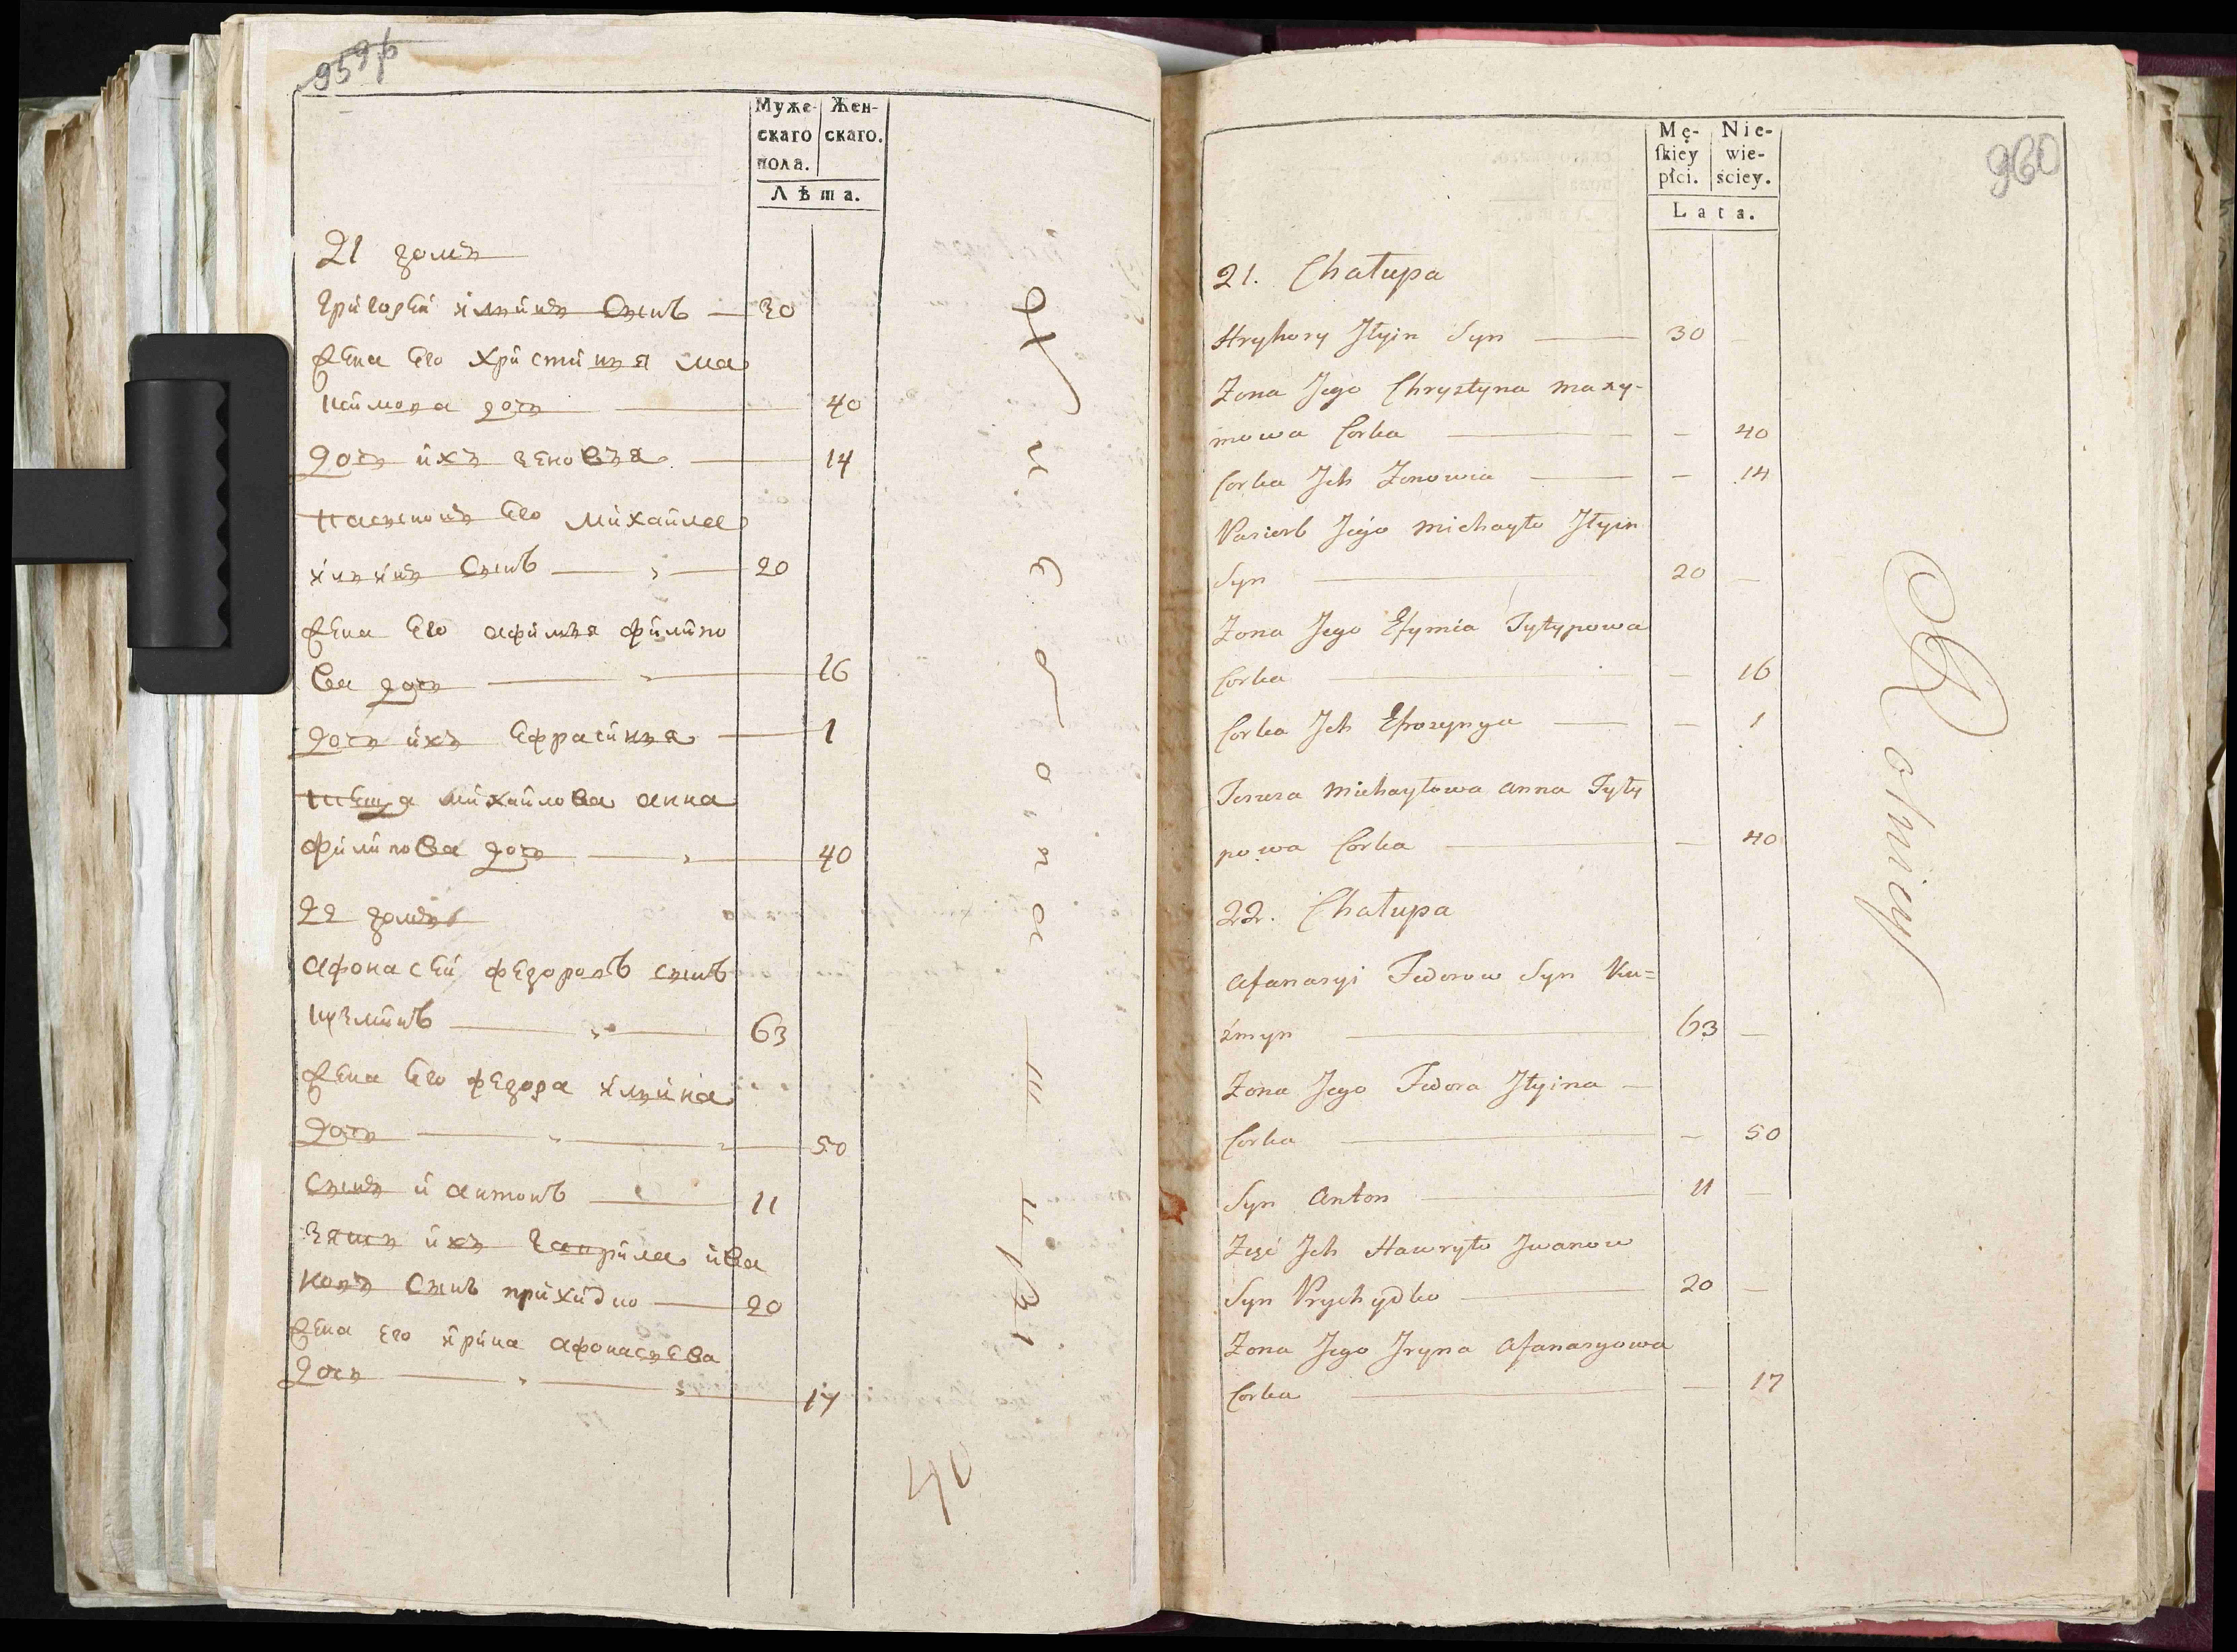 959 об
Муже- Жен-
скаго скаго.
пола.
Лѣта.
21 домъ
Григорей ильинъ сынъ — 30
жена его христинья ма
ксимова дочь — 40
дочь ихъ зеновъя — 14
пасынокъ его михайла
ильинъ сынъ — 20
жена его афимья филипо
ва дочь — 16
дочь ихъ ефрасинья — 1
теща михайлова анна
филипова дочь — 40
22 домъ
афонасей федоровъ сынъ
кузминъ — 63
жена его федора ильина
дочь — 50
сынъ и антонъ — 11
зять ихъ гаврила ива
новъ сынъ прихидко — 20
жена его ирина афонасьева
дочь — 17
40
960
Mę- Nie-
ſkiey wie-
płci. ściey.
Lata.
21. Chałupa
Hryhory Jłyin Syn — 30 —
Zona Jego Chrystyna maxy-
mowa Corka — — 40
Corka Jch Zenowia — — 14
Pasierb Jego michayło Jłyin
Syn — 20 —
Zona Jego Efymia Fyłypowa
Corka — — 16
Corka Jch Efrozynya — — 1
Teszcza michayłowa anna Fyły
powa Corka — — 40
22. Chałupa
afanasyi Fedorow Syn Ku=
źmyn — 63 —
Zona Jego Fedora Jłyina —
Corka — — 50
Syn Anton — 11 —
Zięć Jch Hawryło Jwanow
Syn Prychydko — 20 —
Zona Jego Jryna afanasyowa
Corka — — 17
Rolnicy